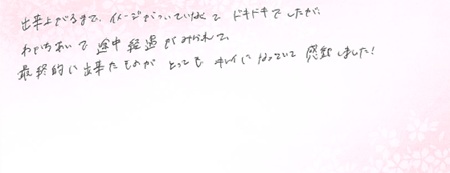 出来上がるまで、イメージがついていなくてドキドキでしたが、
わかちあいで途中経過がみられて、
最終的に出来たものがとってもキレイになっていて感動しました!